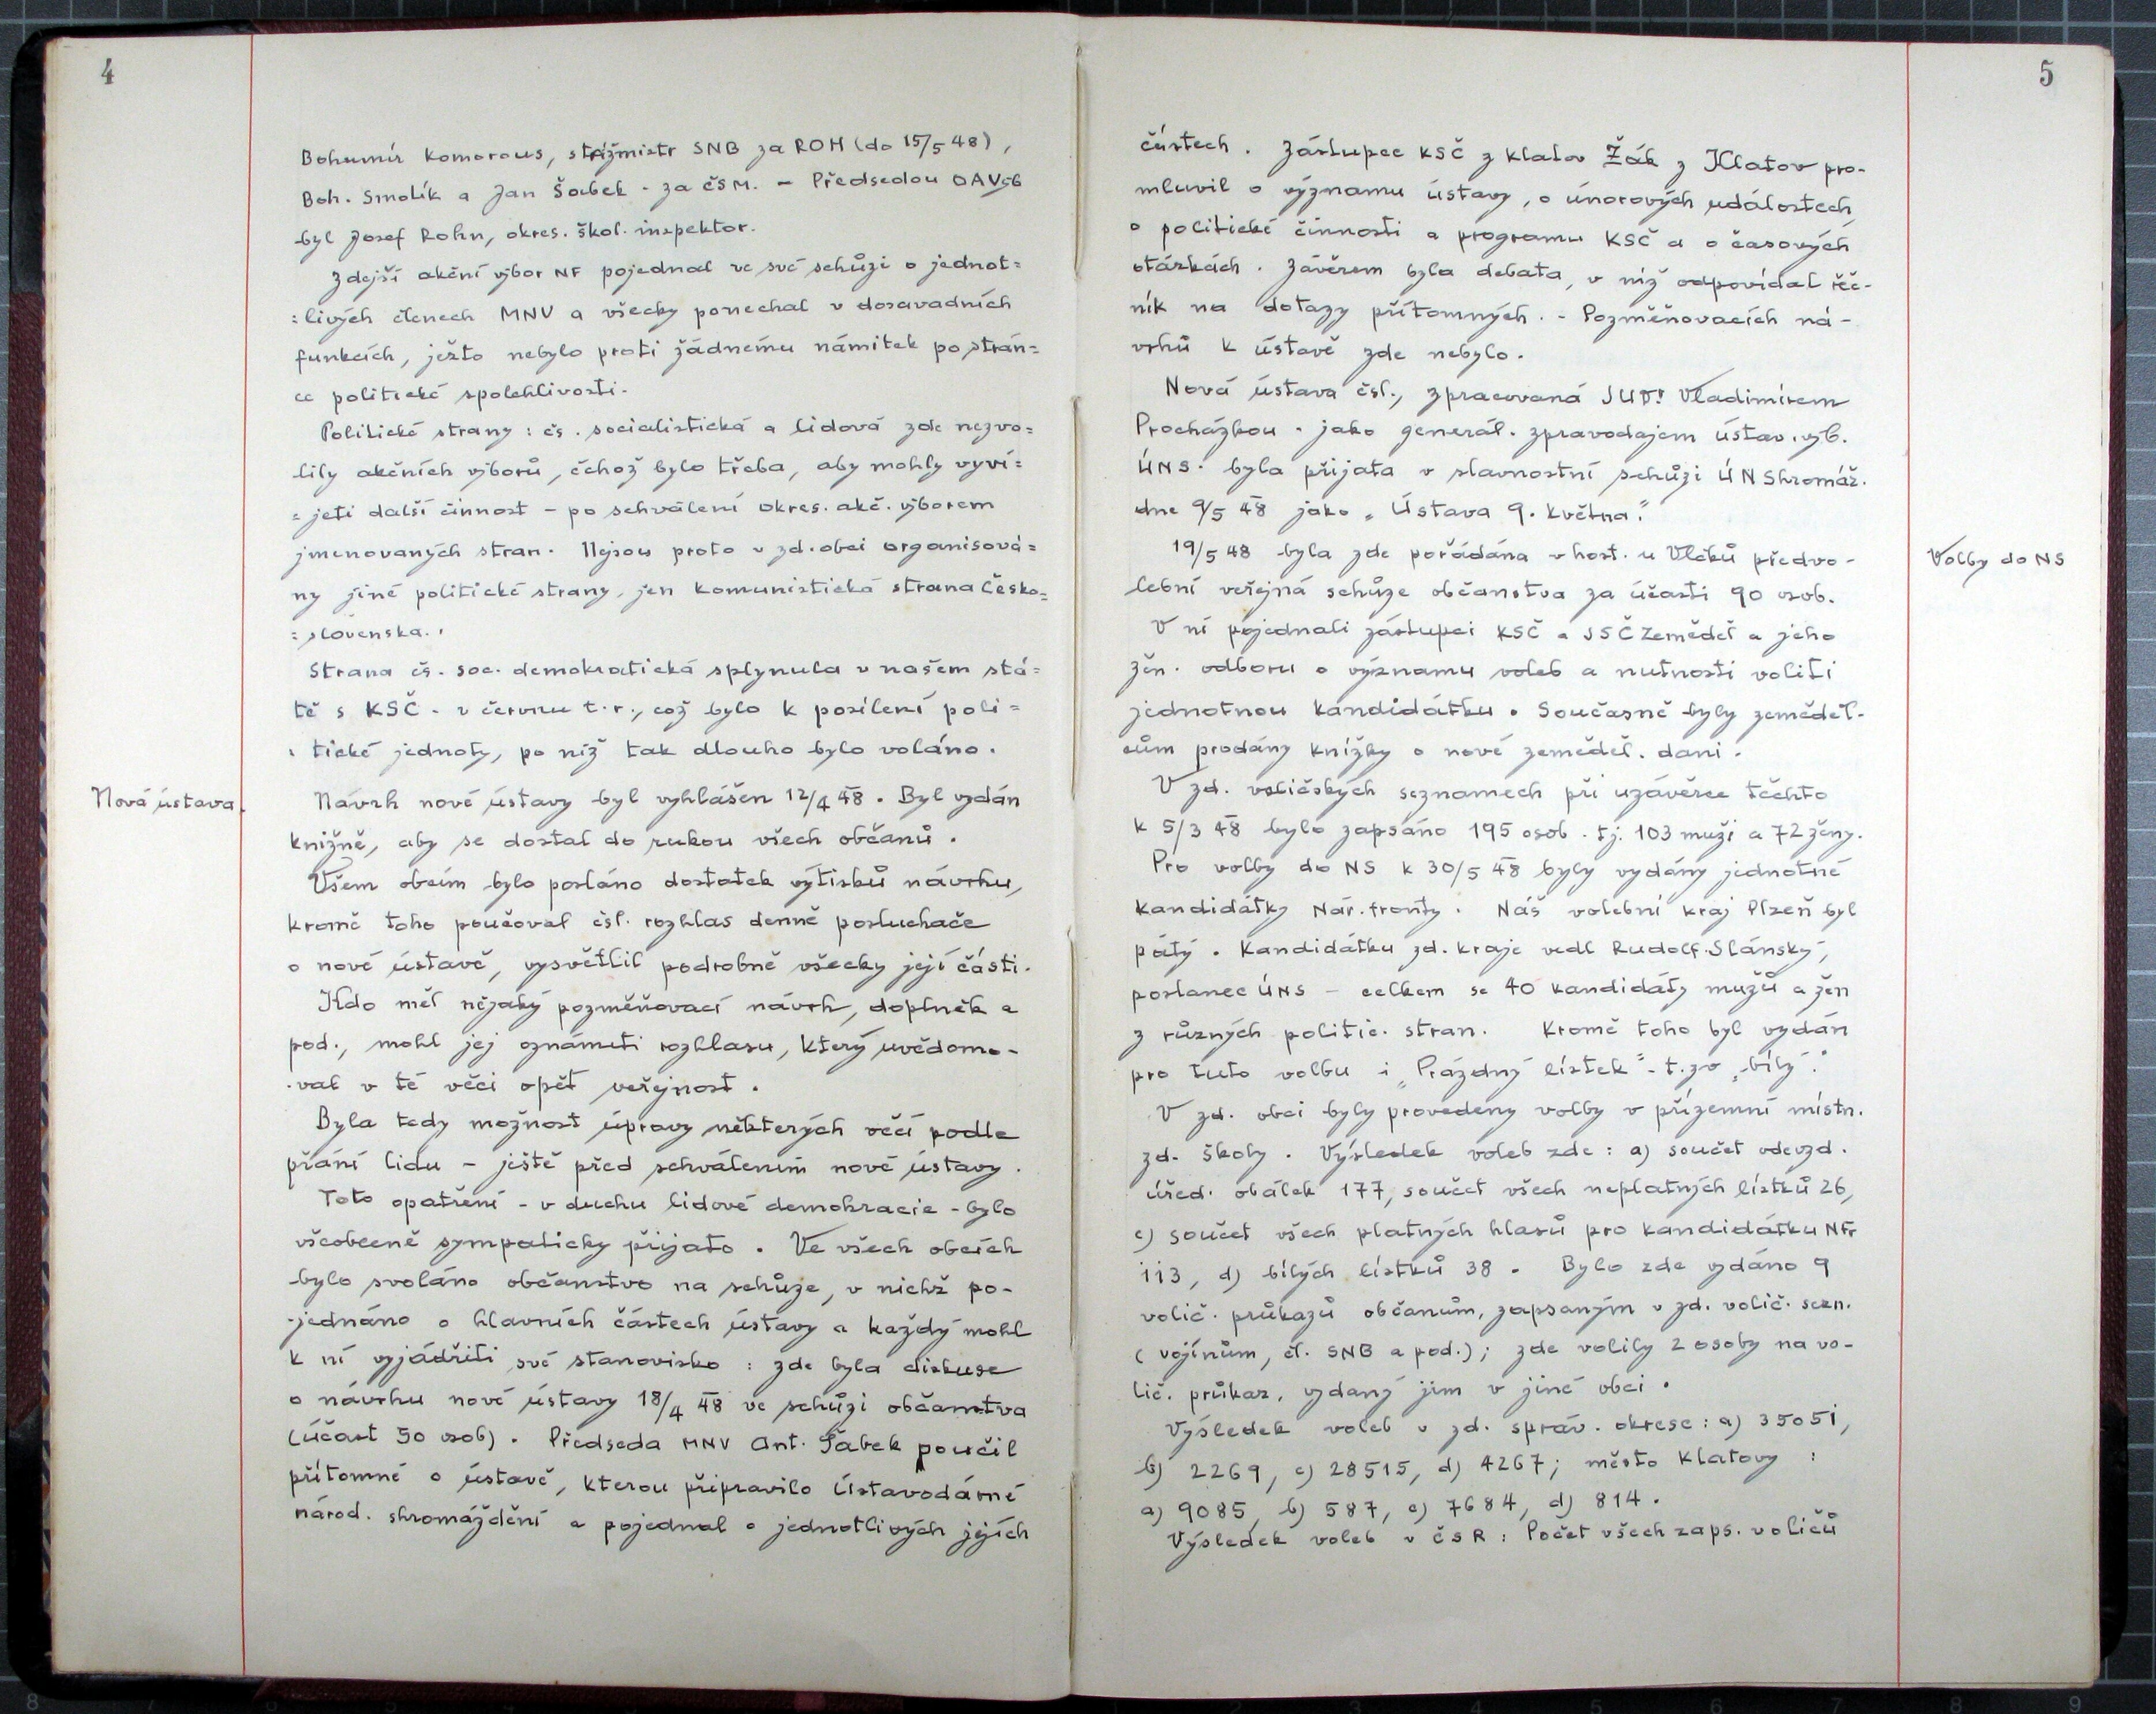 4
Bohumír Komorous, strážmistr SNB za ROH (do 15/5 48),
Boh. Smolík a Jan Šabek - za čSM. - Předsedou OAVýb
byl Josef Rohn, okres. škol. inspektor.
Zdejší akční výbor NF pojednal ve své schůzi o jednot=
=livých členech MNV a všecky ponechal v dosavadních
funkcích, ježto nebylo proti žádnému námitek po strán=
ce politické spolehlivosti.
Politické strany: čs. socialistická a lidová zde nezvo=
lily akčních výborů, čehož bylo třeba, aby mohly vyví=
=jeti další činnost - po schválení okres. akč. výborem
jmenovaných stran. Nejsou proto v zd. obci organisová=
ny jiné politické strany, jen Komunistická strana Česko=
=slovenska.
Strana čs. soc. demokratická splynula v našem stá=
tě s KSČ - v červnu t.r., což bylo k posílení poli=
tické jednoty, po níž tak dlouho bylo voláno.
Nová ústava.
Návrh nové ústavy byl vyhlášen 12/4 48. Byl vydán
knižně, aby se dostal do rukou všech občanů.
Všem obcím bylo posláno dostatek výtisků návrhu,
kromě toho poučoval čsl. rozhlas denně posluchače
o nové ústavě, vysvětlil podrobně všecky její části.
Kdo měl nějaký pozměňovací návrh, doplněk a
pod., mohl jej oznámiti rozhlasu, který uvědomo-
val v té věci opět veřejnost.
Byla tedy možnost úpravy některých věcí podle
přání lidu - ještě před schválením nové ústavy.
Toto opatření - v duchu lidové demokracie - bylo
všeobecně sympaticky přijato. Ve všech obcích
bylo svoláno občanstvo na schůze, v nichž po-
jednáno o hlavních částech ústavy a každý mohl
k ní vyjádřiti své stanovisko: zde byla diskuse
o návrhu nové ústavy 18/4 48 ve schůzi občanstva
(účast 50 osob). Předseda MNV Ant. Šabek poučil
přítomné o ústavě, kterou připravilo Ústavodárné
národ. shromáždění a pojednal o jednotlivých jejích
5
částech. Zástupce KSČ z Klatov Žák z Klatov pro-
mluvil o významu ústavy, o únorových událostech,
o politické činnosti a programu KSČ a o časových
otázkách. Závěrem byla debata, v níž odpovídal řeč-
ník na dotazy přítomných. - Pozměňovacích ná-
vrhů k ústavě zde nebylo.
Nová ústava čsl., zpracovaná JUDr Vladimírem
Procházkou - jako generál. zpravodajem ústav. výb.
ÚNS - byla přijata v slavnostní schůzi ÚNShromáž.
dne 9/5 48 jako „Ústava 9. května."
Volby do NS
19/5 48 byla zde pořádána v host. u Vlčků předvo-
lební veřejná schůze občanstva za účasti 90 osob.
V ní pojednali zástupci KSČ a JSČ Zeměděl a jeho
žen. odboru o významu voleb a nutnosti voliti
jednotnou kandidátku. Současně byly zeměděl-
cům prodány knížky o nové zeměděl. dani.
V zd. voličských seznamech při uzávěrce těchto
k 5/3 48 bylo zapsáno 195 osob. tj. 103 muži a 72 ženy.
Pro volby do NS k 30/5 48 byly vydány jednotné
kandidátky Nár. fronty. Náš volební kraj Plzeň byl
pátý. Kandidátku zd. kraje vedl Rudolf Slánský,
poslanec ÚNS - celkem se 40 kandidáty mužů a žen
z různých politic. stran. Kromě toho byl vydán
pro tuto volbu i „Prázdný lístek" - t.zv „bílý".
V zd. obci byly provedeny volby v přízemní místn.
zd. školy. Výsledek voleb zde: a) součet odevzd.
úřed. obálek 177, součet všech neplatných lístků 26,
c) součet všech platných hlasů pro kandidátku NFr
113, d) bílých lístků 38. Bylo zde vydáno 9
volič. průkazů občanům, zapsaným v zd. volič. sezn.
(vojínům, čl. SNB a pod.); zde volily 2 osoby na vo-
lič. průkaz, vydaný jim v jiné obci.
Výsledek voleb v zd. správ. okrese: a) 35051,
b) 2269, c) 28515, d) 4267; město Klatovy:
a) 9085, b) 587, c) 7684, d) 814.
Výsledek voleb v ČSR: Počet všech zaps. voličů